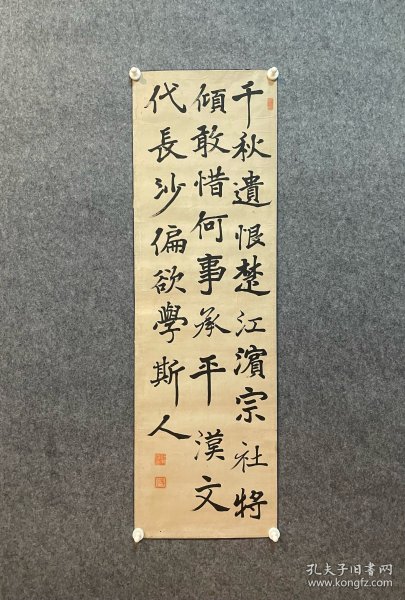 千秋遺恨楚江濱宗社將
傾敢惜何事承平漢文
代長沙偏欲學斯人
孔夫子旧书网
www.kongfz.com